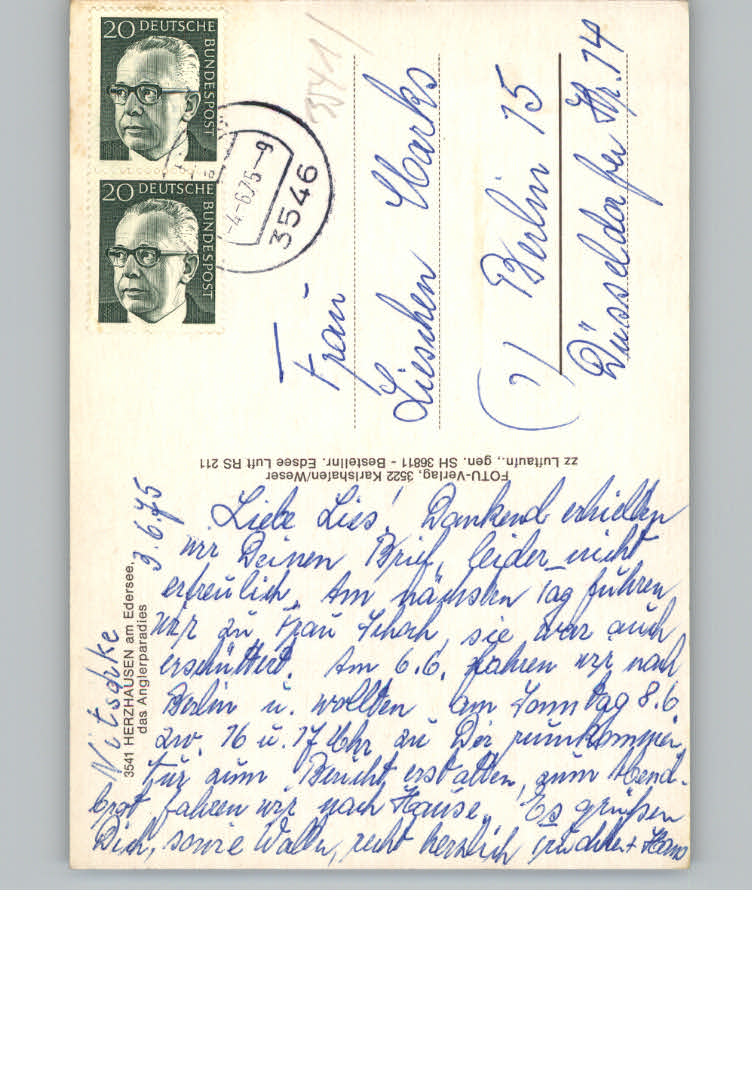 20 DEUTSCHE BUNDESPOST
20 DEUTSCHE BUNDESPOST
-4-6.75-9
3546
3541
Frau
Lieschen Marks
1) Berlin 15
Düsseldorfer Str. 74
zz Luftaufn., gen. SH 36811 - Bestellnr. Edsee Luft RS 211
FOTU-Verlag, 3522 Karlshafen/Weser
3541 HERZHAUSEN am Edersee,
das Anglerparadies
Nitschke
3.6.75
Liebe Lies! Dankend erhielten
wir Deinen Brief, leider nicht
erfreulich. Am nächsten Tag fuhren
wir zu Frau Schoch, sie war auch
erschüttert. Am 6.6. fahren wir nach
Berlin u. wollten am Sonntag 8.6
zw. 16 u. 17 Uhr zu Dir rumkommen,
nur zum Bericht erstatten, zum Abend-
brot fahren wir nach Hause. Es grüßen
Dich, sowie Walter, recht herzlich + Hans